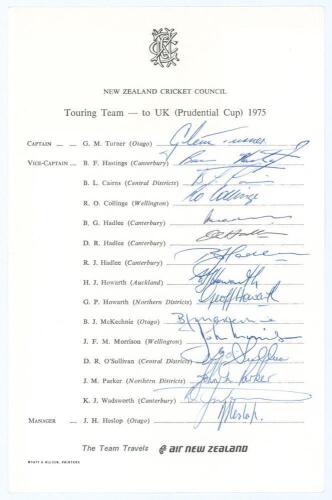 NEW ZEALAND CRICKET COUNCIL
Touring Team — to UK (Prudential Cup) 1975
CAPTAIN — G. M. Turner (Otago) Glenn Turner
VICE-CAPTAIN — B. F. Hastings (Canterbury)
B. L. Cairns (Central Districts)
R. O. Collinge (Wellington) R O Collinge
B. G. Hadlee (Canterbury)
D. R. Hadlee (Canterbury) D R Hadlee
R. J. Hadlee (Canterbury)
H. J. Howarth (Auckland) H J Howarth
G. P. Howarth (Northern Districts) Geoff Howarth
B. J. McKechnie (Otago) B J McKechnie
J. F. M. Morrison (Wellington) John Morrison
D. R. O'Sullivan (Central Districts)
J. M. Parker (Northern Districts) John M Parker
K. J. Wadsworth (Canterbury)
MANAGER — J. H. Heslop (Otago) J Heslop.
The Team Travels air new zealand
WYATT & WILSON, PRINTERS